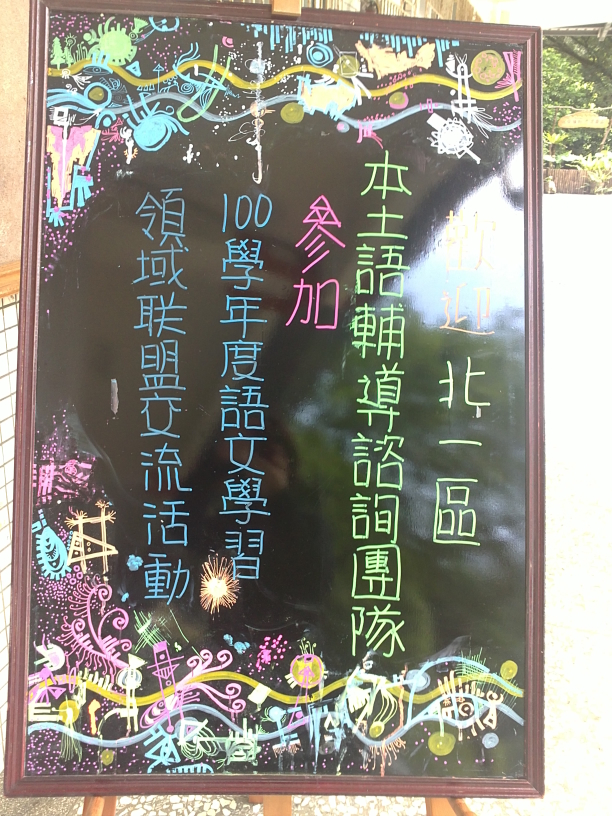 歡迎北一區
本土語輔導諮詢團隊
參加
100學年度語文學習
領域联盟交流活動